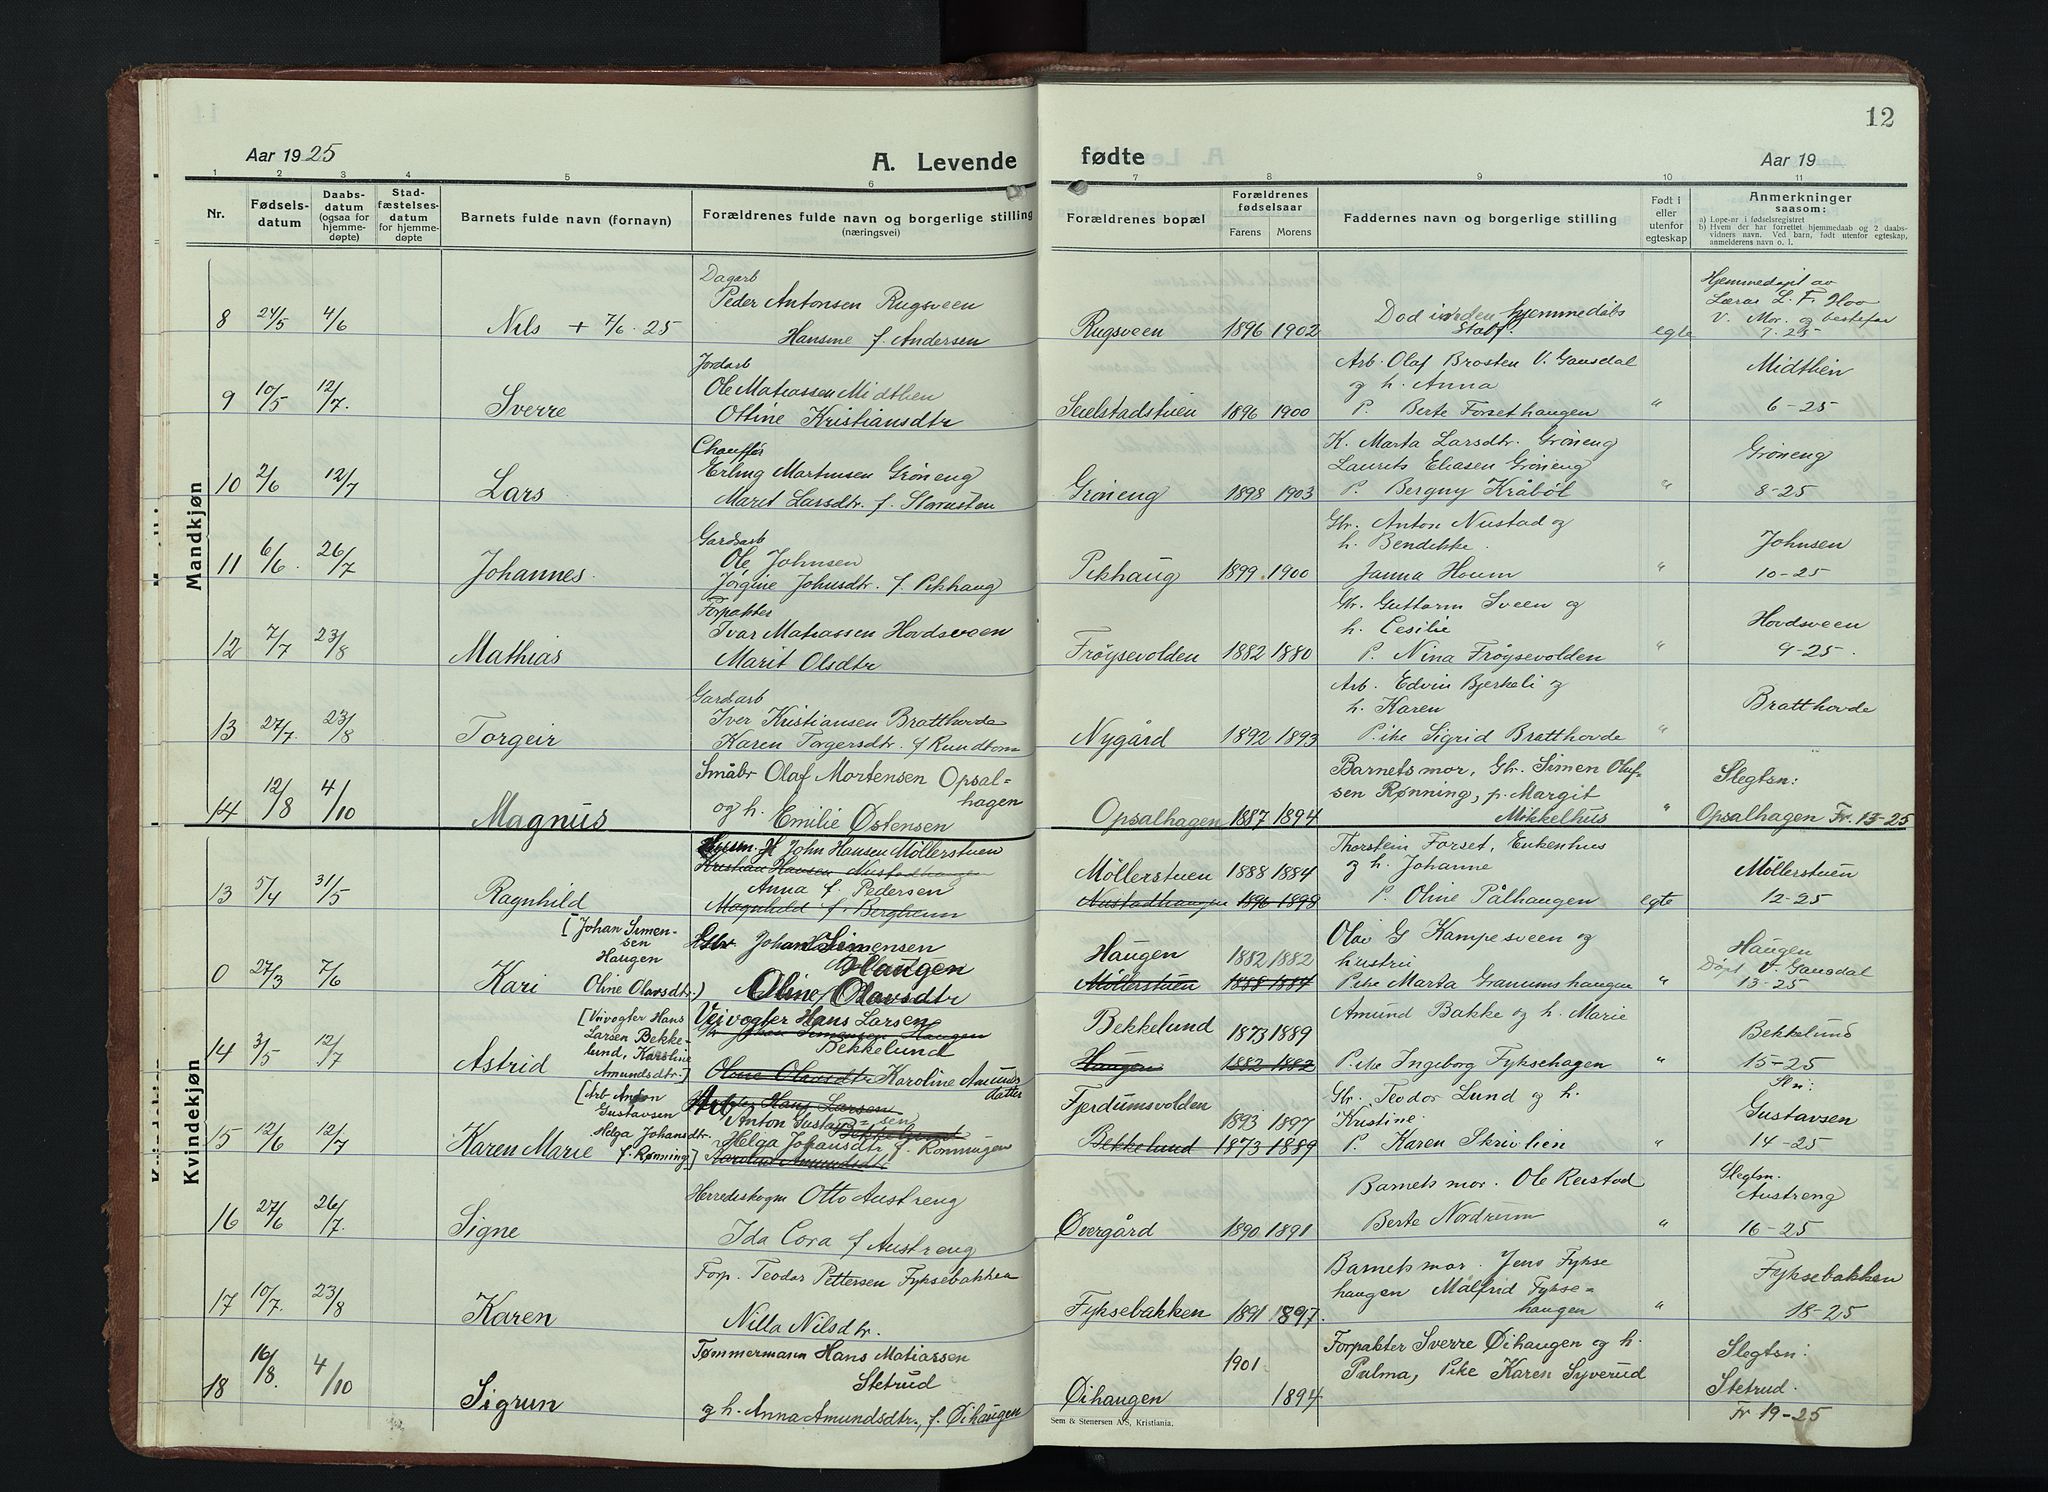 12
Aar 1925
A. Levende
fødte
Aar 19
1 2 3 4 5 6 7 8 9 10 11
Nr.
Fødsels-
datum
Daabs-
datum
(ogsaa for
hjemme-
døpte)
Stad-
fæstelses-
datum
for hjemme-
døpte
Barnets fulde navn (fornavn)
Forældrenes fulde navn og borgerlige stilling
(næringsvei)
Forældrenes bopæl
Forældrenes
fødselsaar
Farens Morens
Faddernes navn og borgerlige stilling
Født i
eller
utenfor
egteskap
Anmerkninger
saasom:
a) Løpe-nr i fødselsregistret
b) Hvem der har forrettet hjemmedaab og 2 daabs-
vidners navn. Ved barn, født utenfor egteskap,
anmelderens navn o. l.
Mandkjøn
8 24/5 4/6 Nils + 7/6 25
Dagarb
Peder Antonsen Rugsveen
Hansine f. Andersen
Rugsveen 1896 1902
Død inden hjemmedåbs
Stadf.
egte
Hjemmedøpt av
Lærer L. F. Hov
V. Mor og bestefar
7-25
9 10/5 12/7. Sverre
Jordarb
Ole Matiassen Midtlien
Ottine Kristiansdtr
Seielstadstuen 1896 1900
Arb. Olaf Brosten V. Gausdal
og h. Anna
P. Berte Forsethaugen "
Midtlien
6-25
10 2/6 12/7 Lars
Chauffør
Erling Martinsen Grøneng
Marit Larsdtr. f. Stonusten
Grøneng 1898 1903
K. Marta Larsdtr. Grøneng
Laurets Eliasen Grøneng
P. Bergny Kråbøl "
Grøneng
8-25
11 6/6. 26/7 Johannes.
Gardsarb
Ole Johnsen
Jørgine Johnsdtr. f. Pikhaug
Pikhaug 1899 1900
Gbr. Anton Nustad og
h. Bendikke.
Janna Houm "
Johnsen
10-25
12 7/7 23/8 Mathias
Forpakter
Ivar Matiassen Hovdsveen
Marit Olsdtr
Frøysevolden 1882 1880
Gbr. Guttorm Sveen og
h. Cesilie
P. Nina Frøysevolden "
Hovdsveen
9-25.
13 27/7. 23/8 Torgeir
Gardarb
Iver Kristiansen Bratthovde
Karen Torgersdtr. f Rundtom
Nygård 1892 1893
Arb. Edvin Bjerkeli og
h. Karen
Pike Sigrid Bratthovde "
Bratthovde
14 12/8 4/10 Magnus
Småbr Olaf Mortensen Opsal-
hagen
og h. Emilie Østensen
Opsalhagen 1887 1894
Barnets mor, Gbr. Simen Oluf-
sen Rønning, p. Margit
Mikkelhus "
Slegtsn:
Opsalhagen Fr. 13-25
Kvindekjøn
13 5/4 31/5 Ragnhild
John Hansen Møllerstuen
Kristian Hansen Nustadhaugen
Anna f. Pedersen
Magnhild f. Bergheim
Møllerstuen 1888 1884
Nustadhaugen 1896 1898
Thorstein Forset, Enkenhus
og h. Johanne
P. Oline Pålhaugen egte
Møllerstuen
12-25
0 27/3 7/6 Kari
[Johan Simen-
sen
Haugen
Oline Olavsdtr.)
Johan Simensen
Haugen
Oline Olavsdtr
Haugen 1882 1882
Møllerstuen 1888 1884
Olav G Kampesveen og
hustru
Pike Marta Granumshaugen "
Haugen
Døpt V. Gausdal
13-25
14 3/5 12/7 Astrid
[Veivogter Hans
Larsen Bekke-
lund, Karoline
Amundsdtr.]
Veivogter Hans Larsen
Johan Simensen Haugen
Bekkelund
Oline Olavsdtr Karoline Amunds
datter
Bekkelund 1873 1889
Haugen 1882 1882
Amund Bakke og h. Marie
Pike Ingeborg Fyksehagen "
Bekkelund
15-25
15 12/6 12/7 Karen Marie
[Arb Anton
Gustavsen
Helga Johansdtr.
f. Rønning]
Arb. Hans Larsen
Anton Gustav=sen
Bekkelund
Helga Johansdtr f. Rønningen
Karoline Amundsdtr
Fjerdumsvolden 1893 1897
Bekkelund 1873 1889
Gbr. Teodor Lund og h.
Kristine
P. Karen Skrivlien "
Sln:
Gustavsen
14-25
16 27/6 26/7. Signe
Herredskogm Otto Austreng
Ida Cora f Austreng
Øvergård 1890 1891
Barnets mor. Ole Reistad
Berte Nordrum "
Slegtsn.
Austreng
16-25
17 10/7. 23/8 Karen
Forp. Teodor Pettersen Fyksebakken
Nilla Nilsdtr.
Fyksebakken 1891 1897
Barnets mor. Jens Fykse
haugen Målfrid Fykse=
haugen "
Fyksebakken
18-25
18 16/8. 4/10 Sigrun
Tømmermann Hans Matiassen
Stetrud
og h. Anna Amundsdtr., f. Øihaugen
Øihaugen 1901 1894
Forpakter Sverre Øihaugen og h.
Palma, Pike Karen Syverud
Slegtsn:
Stetrud.
Fr 19-25
Sem & Stenersen A/S, Kristiania.